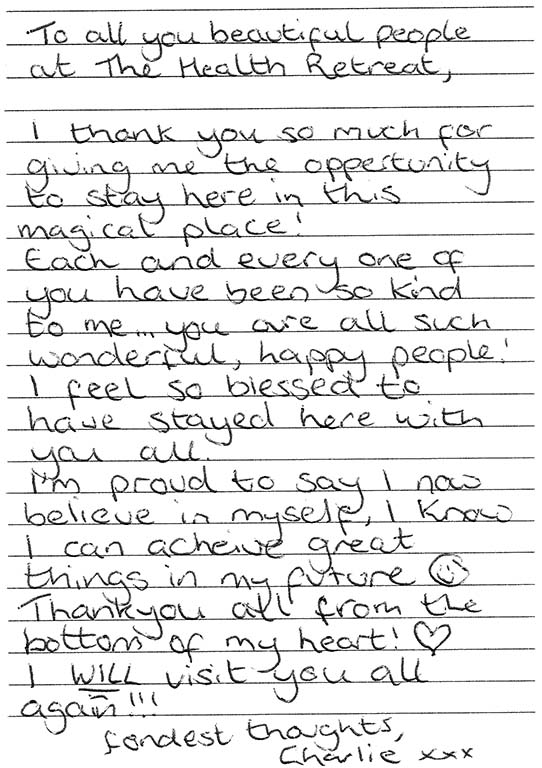 To all you beautiful people
at The Health Retreat,
I thank you so much for
giving me the oppertunity
to stay here in this
magical place!
Each and every one of
you have been so kind
to me... you are all such
wonderful, happy people!
I feel so blessed to
have stayed here with
you all.
I'm proud to say I now
believe in myself, I know
I can acheive great
things in my future ☺
Thankyou all from the
bottom of my heart! ♡
I WILL visit you all
again!!!
fondest thoughts,
Charlie xxx